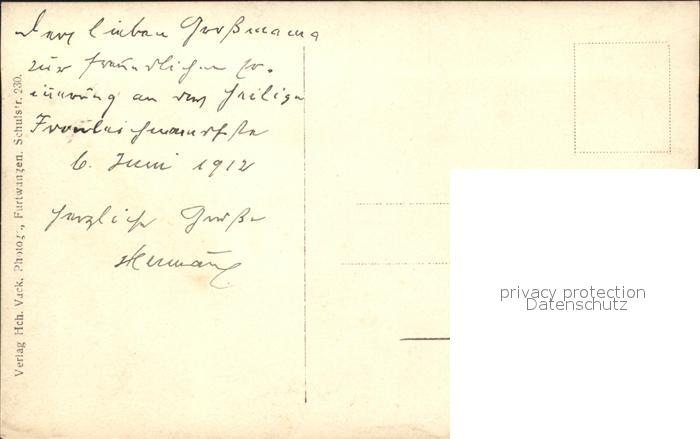 Der lieben Großmama
zur freundlichen Er-
innerung an das heilige
Fronleichnamsfest
6. Juni 1912
herzliche Grüße
Hermann
Verlag Hch. Vack, Photogr., Furtwangen. Schulstr. 230.
privacy protection
Datenschutz